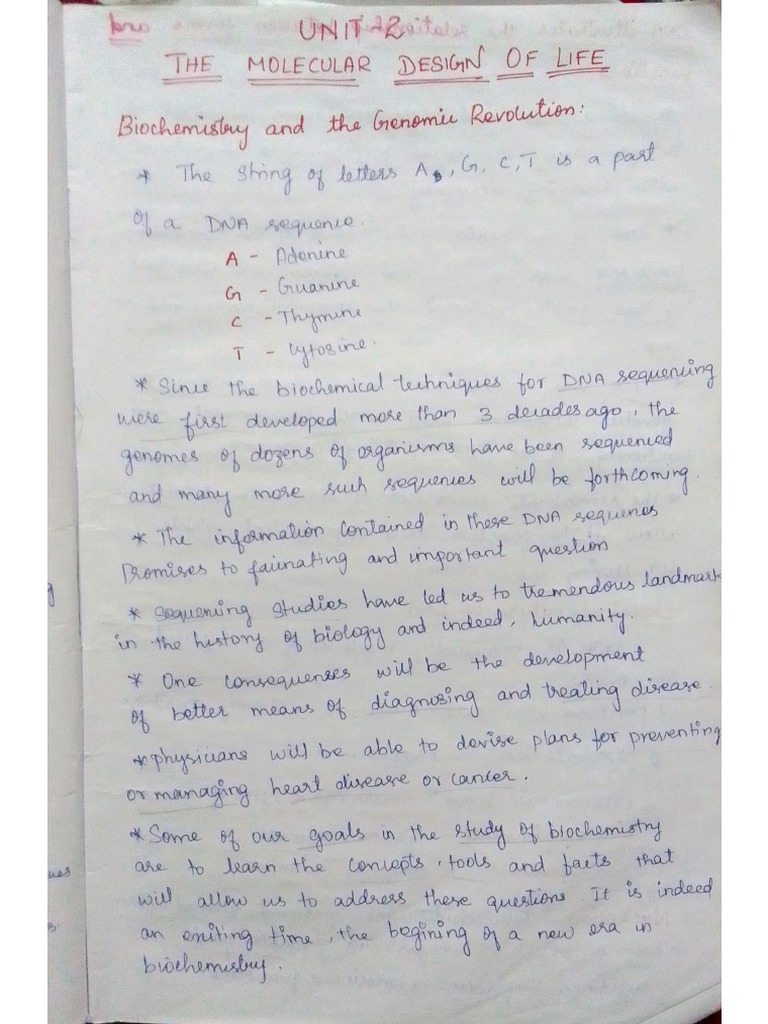 UNIT - 2
THE MOLECULAR DESIGN OF LIFE
Biochemistry and the Genomic Revolution:
* The string of letters A, G, C, T is a part
of a DNA sequence.
A - Adenine
G - Guanine
C - Thymine
T - Cytosine.
* Since the biochemical techniques for DNA sequencing
were first developed more than 3 decades ago, the
genomes of dozens of organisms have been sequenced
and many more such sequences will be forthcoming.
* The information contained in these DNA sequences
Promises to faiinating and important question
* Sequencing studies have led us to tremendous landmark
in the history of biology and indeed, humanity.
* One consequenses will be the development
of better means of diagnosing and treating disease.
* physicians will be able to devise plans for preventing
or managing heart disease or cancer.
* Some of our goals in the study of biochemistry
are to learn the concepts, tools and facts that
will allow us to address these questions It is indeed
an exiting time, the begining of a new era in
biochemistry.